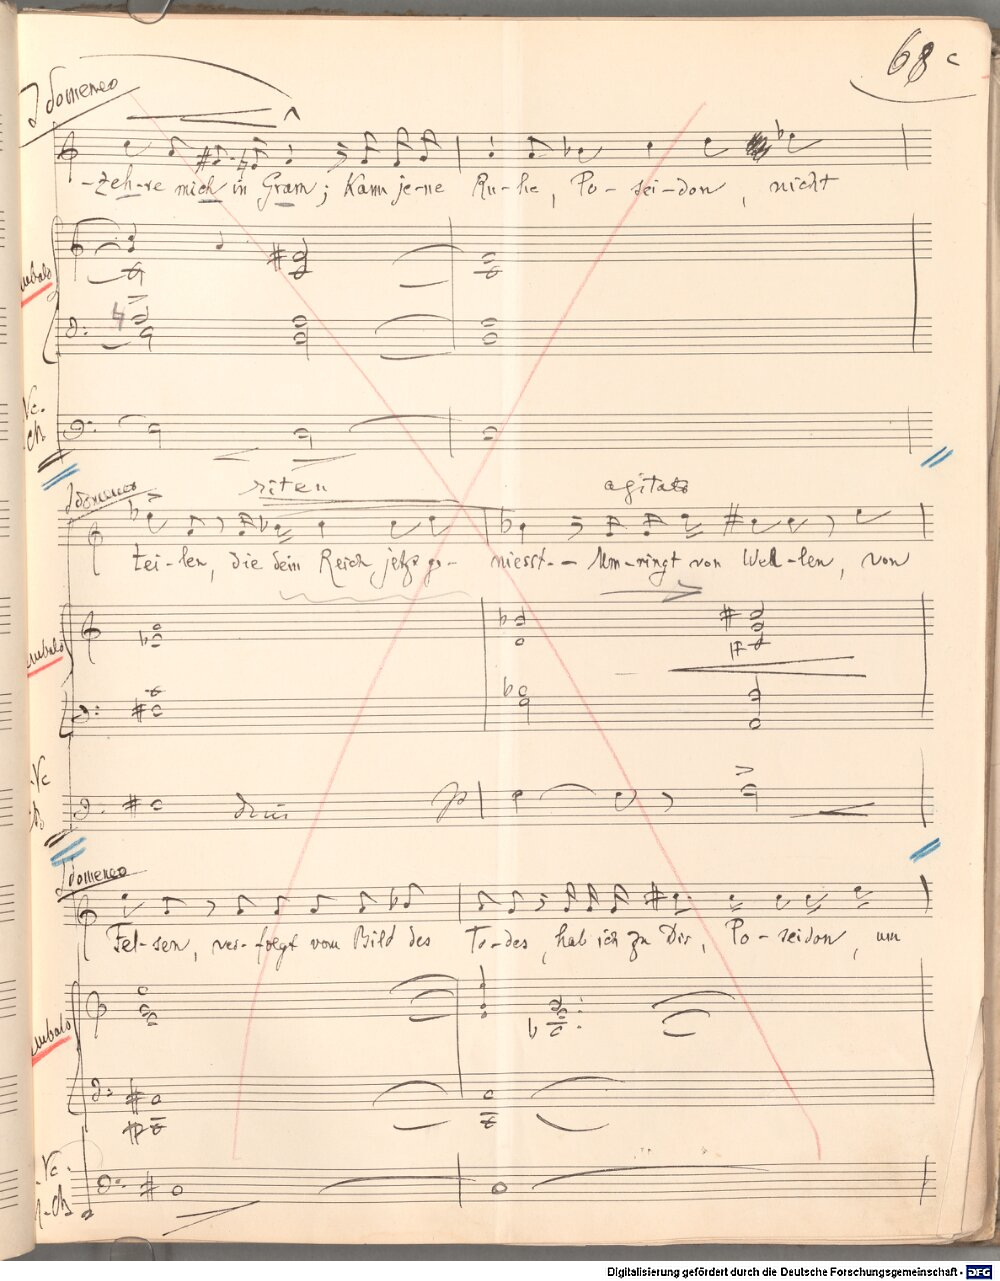 68 c
Idomeneo
-zeh-re mich in Gram; Kann je-ne Ru-he, Po-sei-don, nicht
mbalo
Vc.
ch
Idomeneo
riten
agitato
tei-len, die dein Reich jetzt ge- niesst-- Um-ringt von Wel-len, von
mbalo
Vc
dim
p
Idomeneo
Fel-sen, ver-folgt vom Bild des To-des, hab ich zu Dir, Po-seidon, um
mbalo
Vc.
-ch
Digitalisierung gefördert durch die Deutsche Forschungsgemeinschaft - DFG